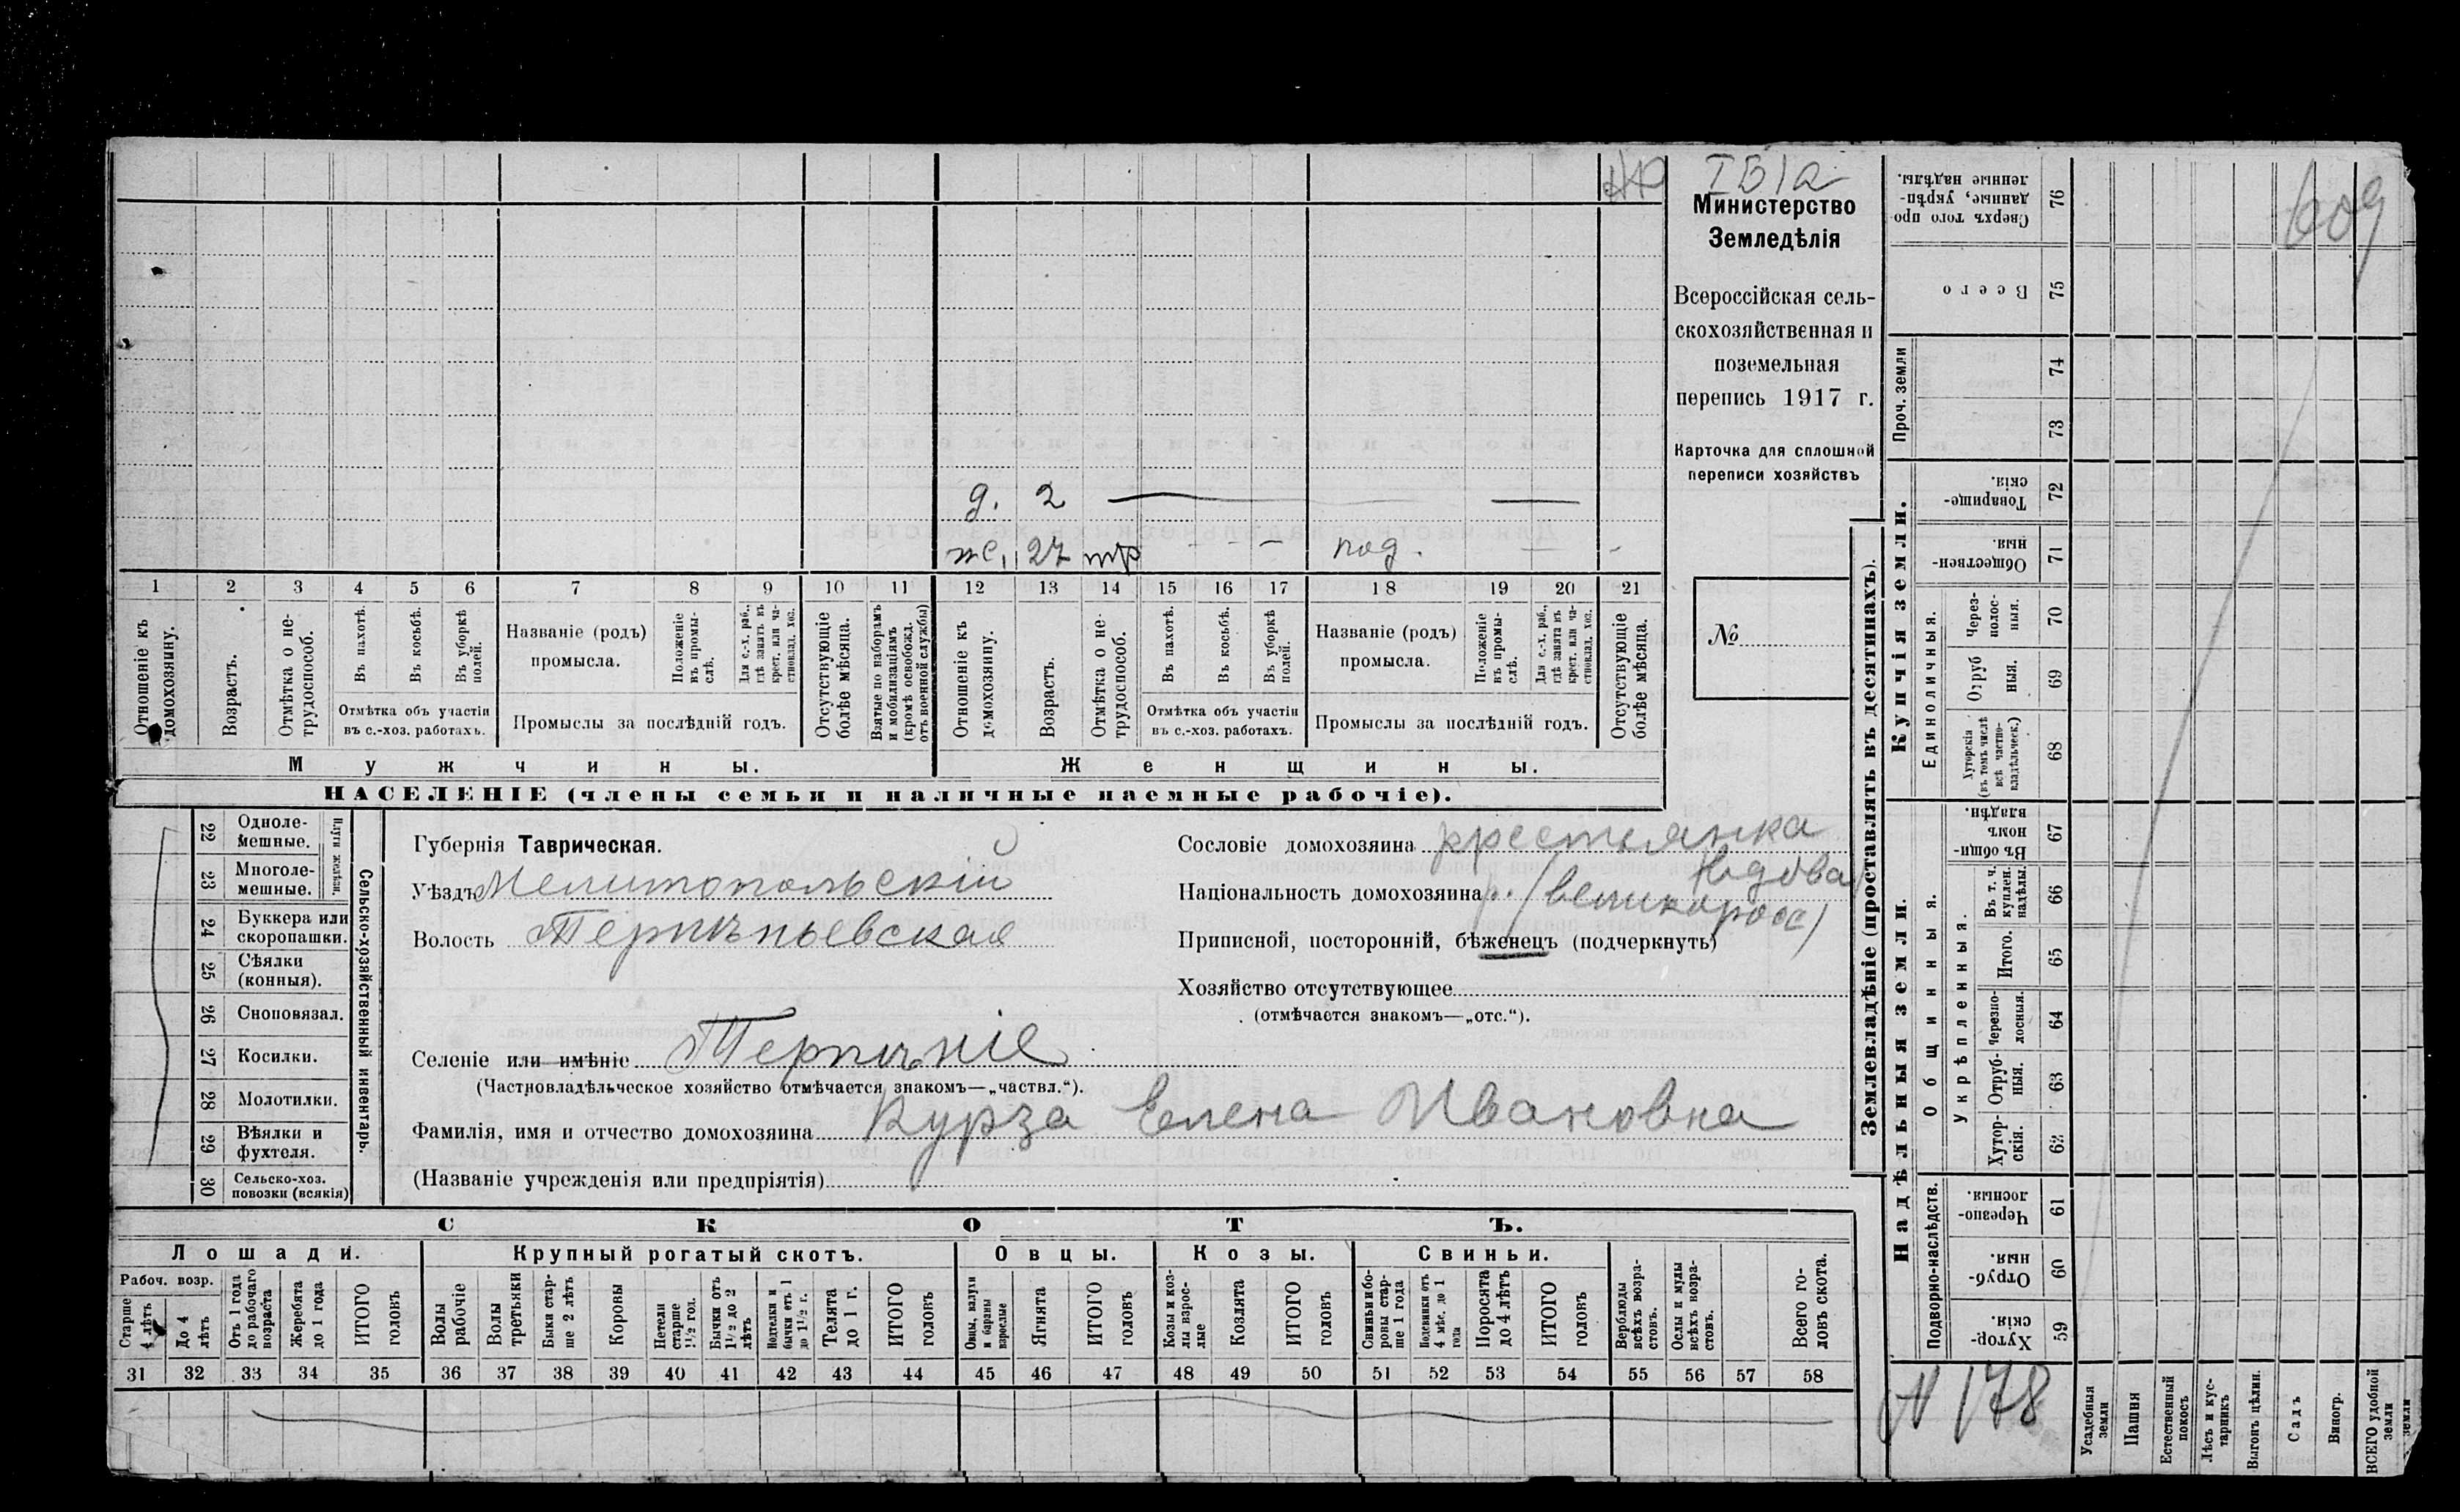 ІБ1а
Министерство
Земледѣлія
Всероссійская сель-
скохозяйственная и
поземельная
перепись 1917 г.
Карточка для сплошной
переписи хозяйствъ
№
д. 2
ж. 27 тр под.
1 2 3 4 5 6 7 8 9 10 11 12 13 14 15 16 17 18 19 20 21
Отношеніе къ домохозяину.
Возрастъ.
Отмѣтка о не-трудоспособ.
Въ пахотѣ.
Въ косьбѣ.
Въ уборкѣ полей.
Отмѣтка объ участіи
въ с.-хоз. работахъ.
Названіе (родъ)
промысла.
Положеніе въ промы-слѣ.
Для с.-х. раб., гдѣ занятъ въ крест. или ча-стновлад. хоз.
Промыслы за послѣдній годъ.
Отсутствующіе болѣе мѣсяца.
Взятые по наборамъ и мобилизаціямъ (кромѣ освобожд. отъ военной службы)
Отношеніе къ домохозяину.
Возрастъ.
Отмѣтка о не-трудоспособ.
Въ пахотѣ.
Въ косьбѣ.
Въ уборкѣ полей.
Отмѣтка объ участіи
въ с.-хоз. работахъ.
Названіе (родъ)
промысла.
Положеніе въ промы-слѣ.
Для с.-х. раб., гдѣ занята въ крест. или ча-стновлад. хоз.
Промыслы за послѣдній годъ.
Отсутствующіе болѣе мѣсяца.
Мужчины.
Женщины.
НАСЕЛЕНІЕ (члены семьи и наличные наемные рабочіе).
22 Одноле-мешные.
23 Многоле-мешные.
Плуги желѣзн.
24 Буккера или скоропашки.
25 Сѣялки (конныя).
26 Сноповязал.
27 Косилки.
28 Молотилки.
29 Вѣялки и фухтеля.
30 Сельско-хоз. повозки (всякія)
Сельско-хозяйственный инвентарь.
Губернія Таврическая.
Уѣздъ Мелитопольскій
Волость Терпѣньевская
Селеніе или имѣніе Терпѣніе
(Частновладѣльческое хозяйство отмѣчается знакомъ—„частвл.“).
Фамилія, имя и отчество домохозяина Курза Елена Ивановна
(Названіе учрежденія или предпріятія)
Сословіе домохозяина крестьянка
Національность домохозяина (великоросс)
Приписной, посторонній, бѣженецъ (подчеркнуть)
Хозяйство отсутствующее
(отмѣчается знакомъ—„отс.“).
СКОТЪ.
Лошади.
Рабоч. возр.
Старше 4 лѣтъ
До 4 лѣтъ
Отъ 1 года до рабочаго возраста
Жеребята до 1 года
ИТОГО головъ
Крупный рогатый скотъ.
Волы рабочіе
Волы третьяки
Быки стар-ше 2 лѣтъ
Коровы
Нетели старше 1½ год.
Бычки отъ 1½ до 2 лѣтъ
Подтелки и бычки отъ 1 до 1½ г.
Телята до 1 г.
ИТОГО головъ
Овцы.
Овцы, валухи и бараны взрослые
Ягнята
ИТОГО головъ
Козы.
Козы и коз-лы взрос-лые
Козлята
ИТОГО головъ
Свиньи.
Свиньи и бо-ровы стар-ше 1 года
Подсвинки отъ 4 мѣс. до 1 года
Поросята до 4 лѣтъ
ИТОГО головъ
Верблюды всѣхъ возра-стовъ.
Ослы и мулы всѣхъ возра-стовъ.
Всего го-ловъ скота.
31 32 33 34 35 36 37 38 39 40 41 42 43 44 45 46 47 48 49 50 51 52 53 54 55 56 57 58
Землевладѣніе (проставлять въ десятинахъ).
Сверхъ того про-данные, укрѣп-ленные надѣлы. 76
Всего 75
Проч. земли
74
73
Купчія земли.
Товарище-скія. 72
Обществен-ныя. 71
Единоличныя.
Через-полос-ныя. 70
Отруб ныя. 69
Хуторскія (въ томъ числѣ всѣ частно-владѣльческ.) 68
Надѣльныя земли.
Общинныя.
Въ общи-номъ владѣн. 67
Укрѣпленныя.
Въ т. ч. куплен. надѣлы. 66
Итого. 65
Черезпо-лосныя. 64
Отруб-ныя. 63
Хутор-скія. 62
Подворно-наслѣдств.
Черезпо-лосныя. 61
Отруб-ныя. 60
Хутор-скія. 59
609
N 178
Усадебныя земли
Пашня
Естественный покосъ
Лѣсъ и кус-тарникъ
Выгонъ цѣлин.
Садъ
Виногр.
ВСЕГО удобной земли
земли